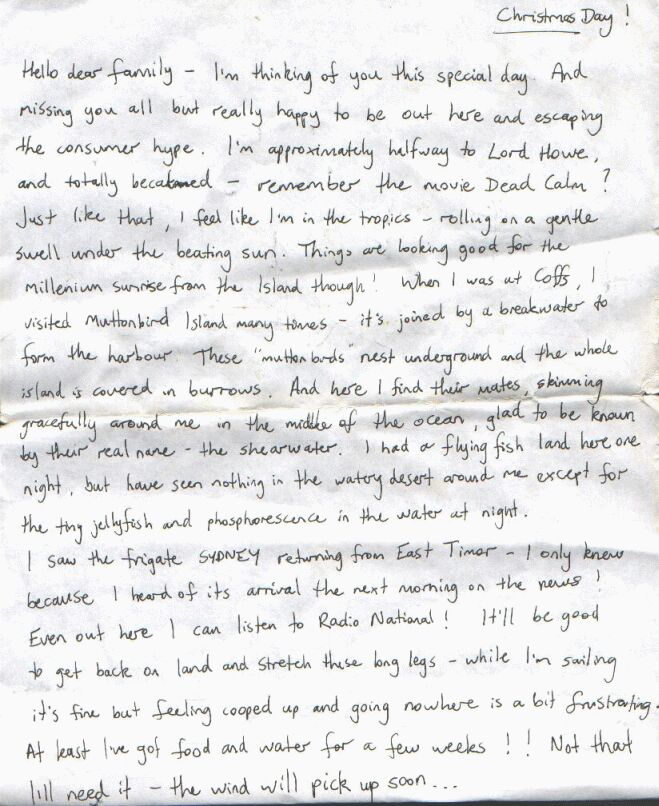 Christmas Day!
Hello dear family - I'm thinking of you this special day. And
missing you all but really happy to be out here and escaping
the consumer hype. I'm approximately halfway to Lord Howe,
and totally becalmed - remember the movie Dead Calm?
Just like that, I feel like I'm in the tropics - rolling on a gentle
swell under the beating sun. Things are looking good for the
millenium sunrise from the Island though! When I was at Coffs, I
visited Muttonbird Island many times - it's joined by a breakwater to
form the harbour These "mutton birds" nest underground and the whole
island is covered in burrows. And here I find their mates, skimming
gracefully around me in the middle of the ocean, glad to be known
by their real name - the shearwater. I had a flying fish land here one
night, but have seen nothing in the watery desert around me except for
the tiny jellyfish and phosphorescence in the water at night.
I saw the frigate SYDNEY returning from East Timor - I only knew
because I heard of its arrival the next morning on the news!
Even out here I can listen to Radio National! It'll be good
to get back on land and stretch these long legs - while I'm sailing
it's fine but feeling cooped up and going nowhere is a bit frustrating.
At least I've got food and water for a few weeks!! Not that
I'll need it - the wind will pick up soon...